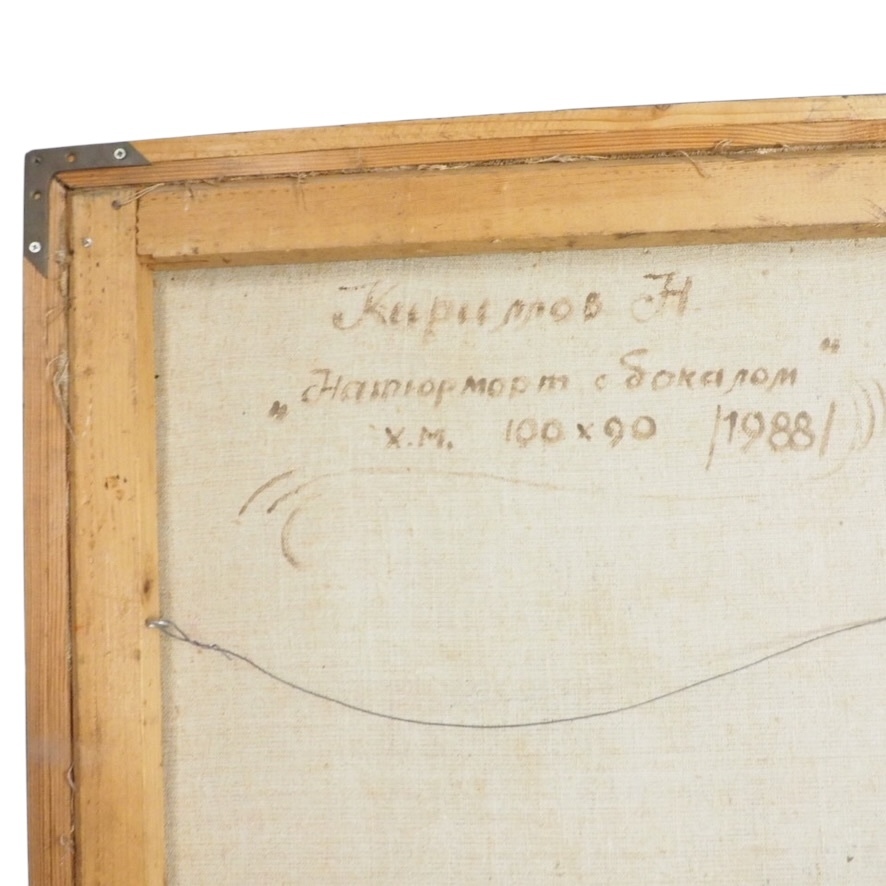 Кириллов Н
„Натюрморт с бокалом"
х.м. 100х90 /1988/